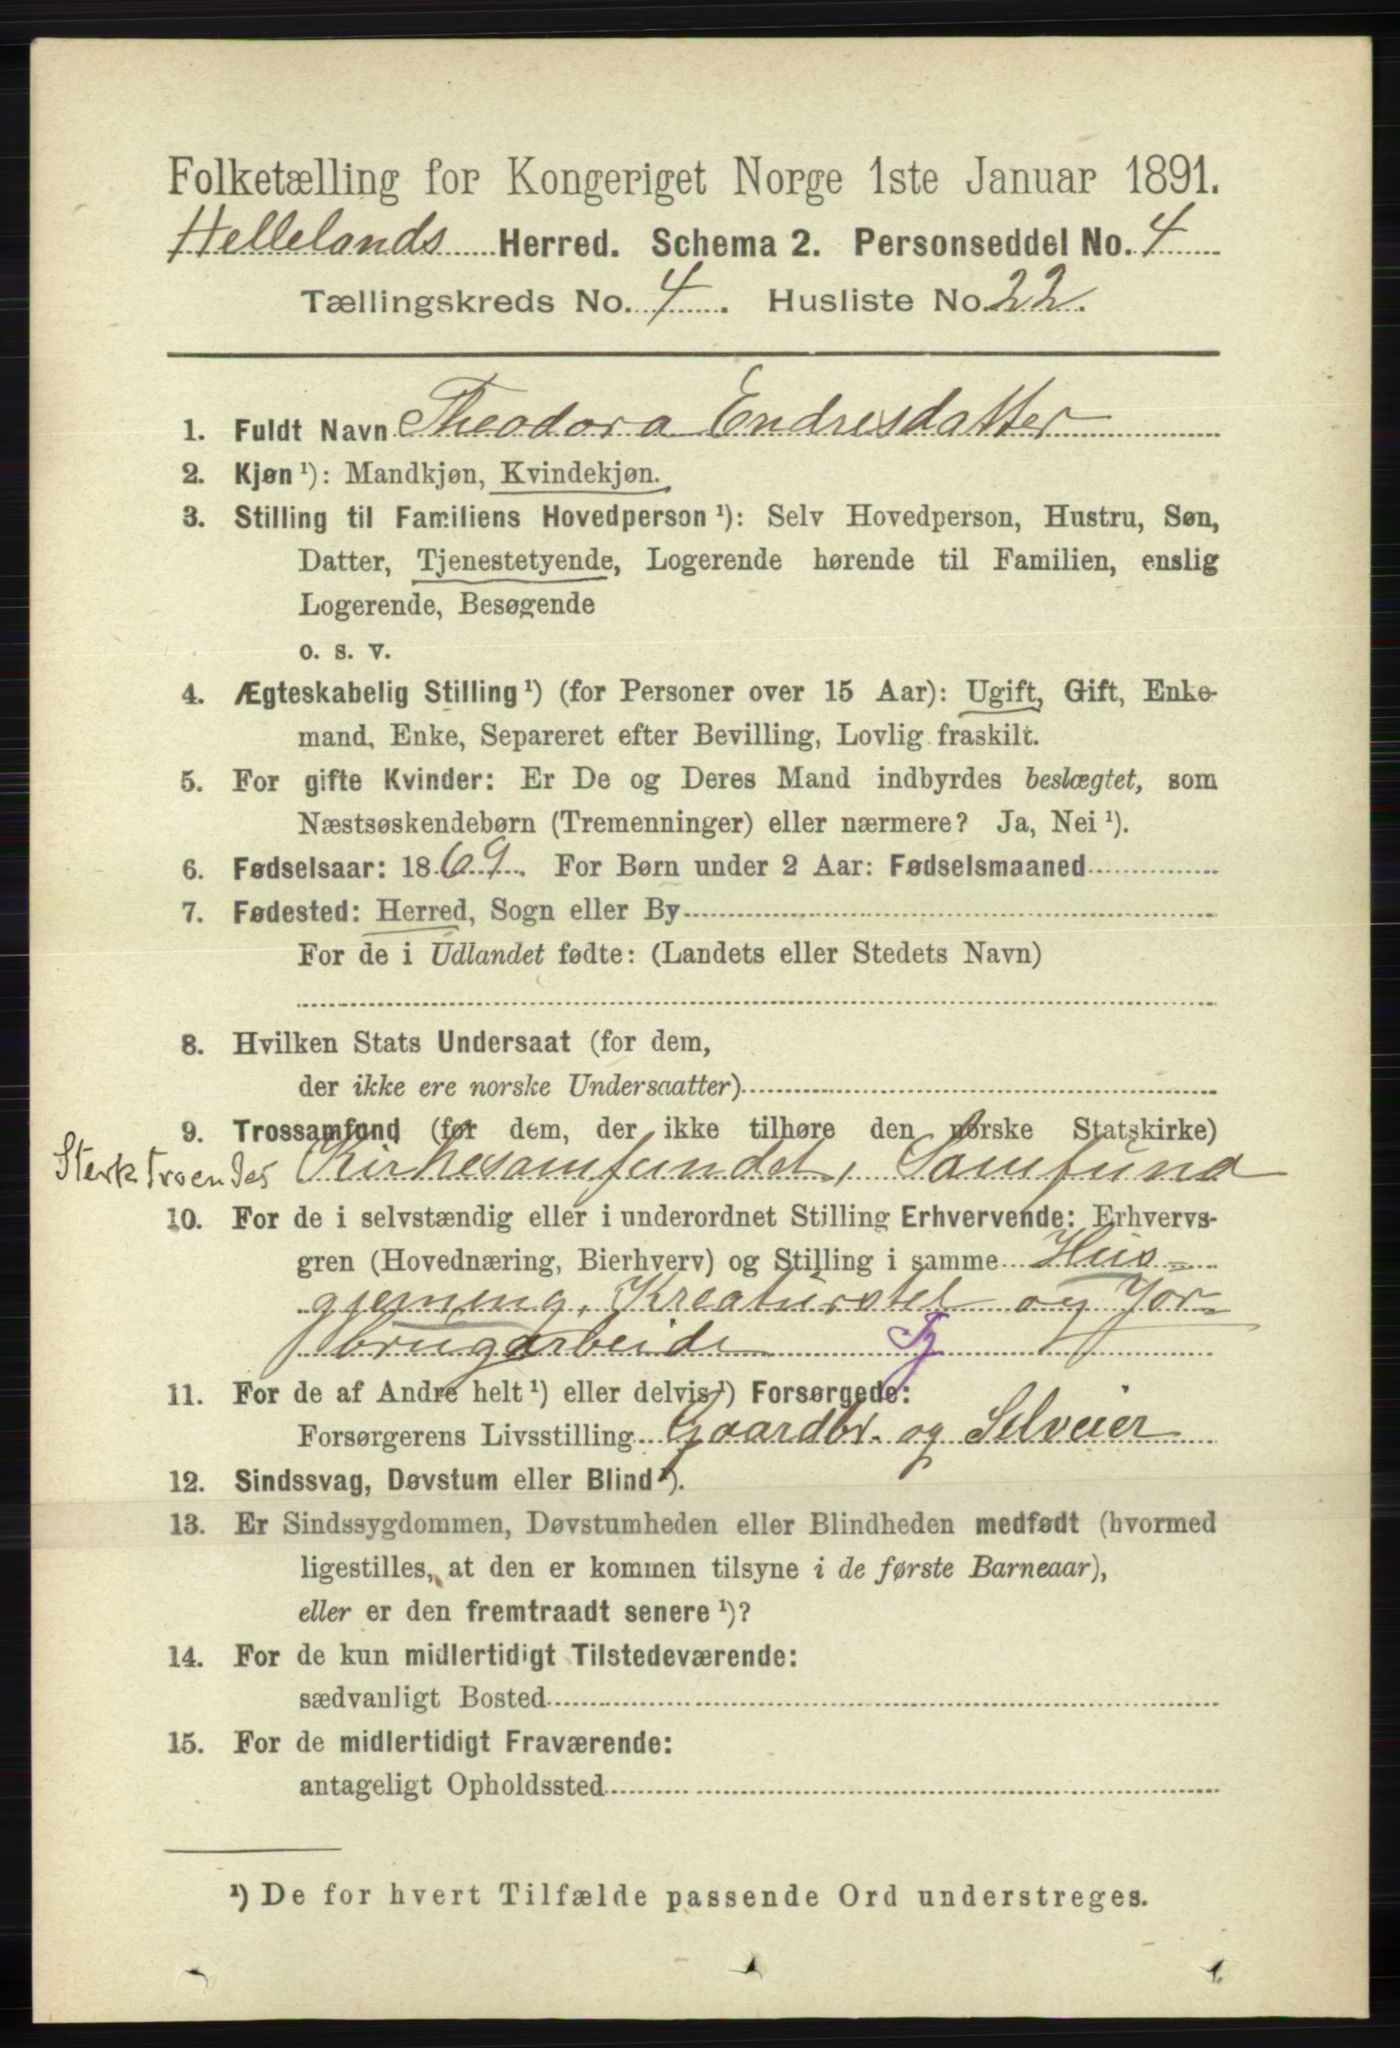 Folketælling for Kongeriget Norge 1ste Januar 1891.
Hellelands Herred. Schema 2. Personseddel No. 4
Tællingskreds No. 4. Husliste No. 22.
1. Fuldt Navn Theodora Endresdatter
2. Kjøn ¹): Mandkjøn, Kvindekjøn.
3. Stilling til Familiens Hovedperson ¹): Selv Hovedperson, Hustru, Søn,
Datter, Tjenestetyende, Logerende hørende til Familien, enslig
Logerende, Besøgende
o. s. v.
4. Ægteskabelig Stilling ¹) (for Personer over 15 Aar): Ugift, Gift, Enke-
mand, Enke, Separeret efter Bevilling, Lovlig fraskilt.
5. For gifte Kvinder: Er De og Deres Mand indbyrdes beslægtet, som
Næstsøskendebørn (Tremenninger) eller nærmere? Ja, Nei ¹).
6. Fødselsaar: 1869. For Børn under 2 Aar: Fødselsmaaned
7. Fødested: Herred, Sogn eller By
For de i Udlandet fødte: (Landets eller Stedets Navn)
8. Hvilken Stats Undersaat (for dem,
der ikke ere norske Undersaatter)
9. Trossamfund (for dem, der ikke tilhøre den norske Statskirke)
Sterktroendes Kirkesamfundet, Samfund
10. For de i selvstændig eller i underordnet Stilling Erhvervende: Erhvervs-
gren (Hovednæring, Bierhverv) og Stilling i samme Hus-
gjerning, Kreaturstel og Jor-
brugarbeide Tj
11. For de af Andre helt ¹) eller delvis ¹) Forsørgede:
Forsørgerens Livsstilling Gaardbr. og Selveier
12. Sindssvag, Døvstum eller Blind ¹).
13. Er Sindssygdommen, Døvstumheden eller Blindheden medfødt (hvormed
ligestilles, at den er kommen tilsyne i de første Barneaar),
eller er den fremtraadt senere ¹)?
14. For de kun midlertidigt Tilstedeværende:
sædvanligt Bosted
15. For de midlertidigt Fraværende:
antageligt Opholdssted
¹) De for hvert Tilfælde passende Ord understreges.